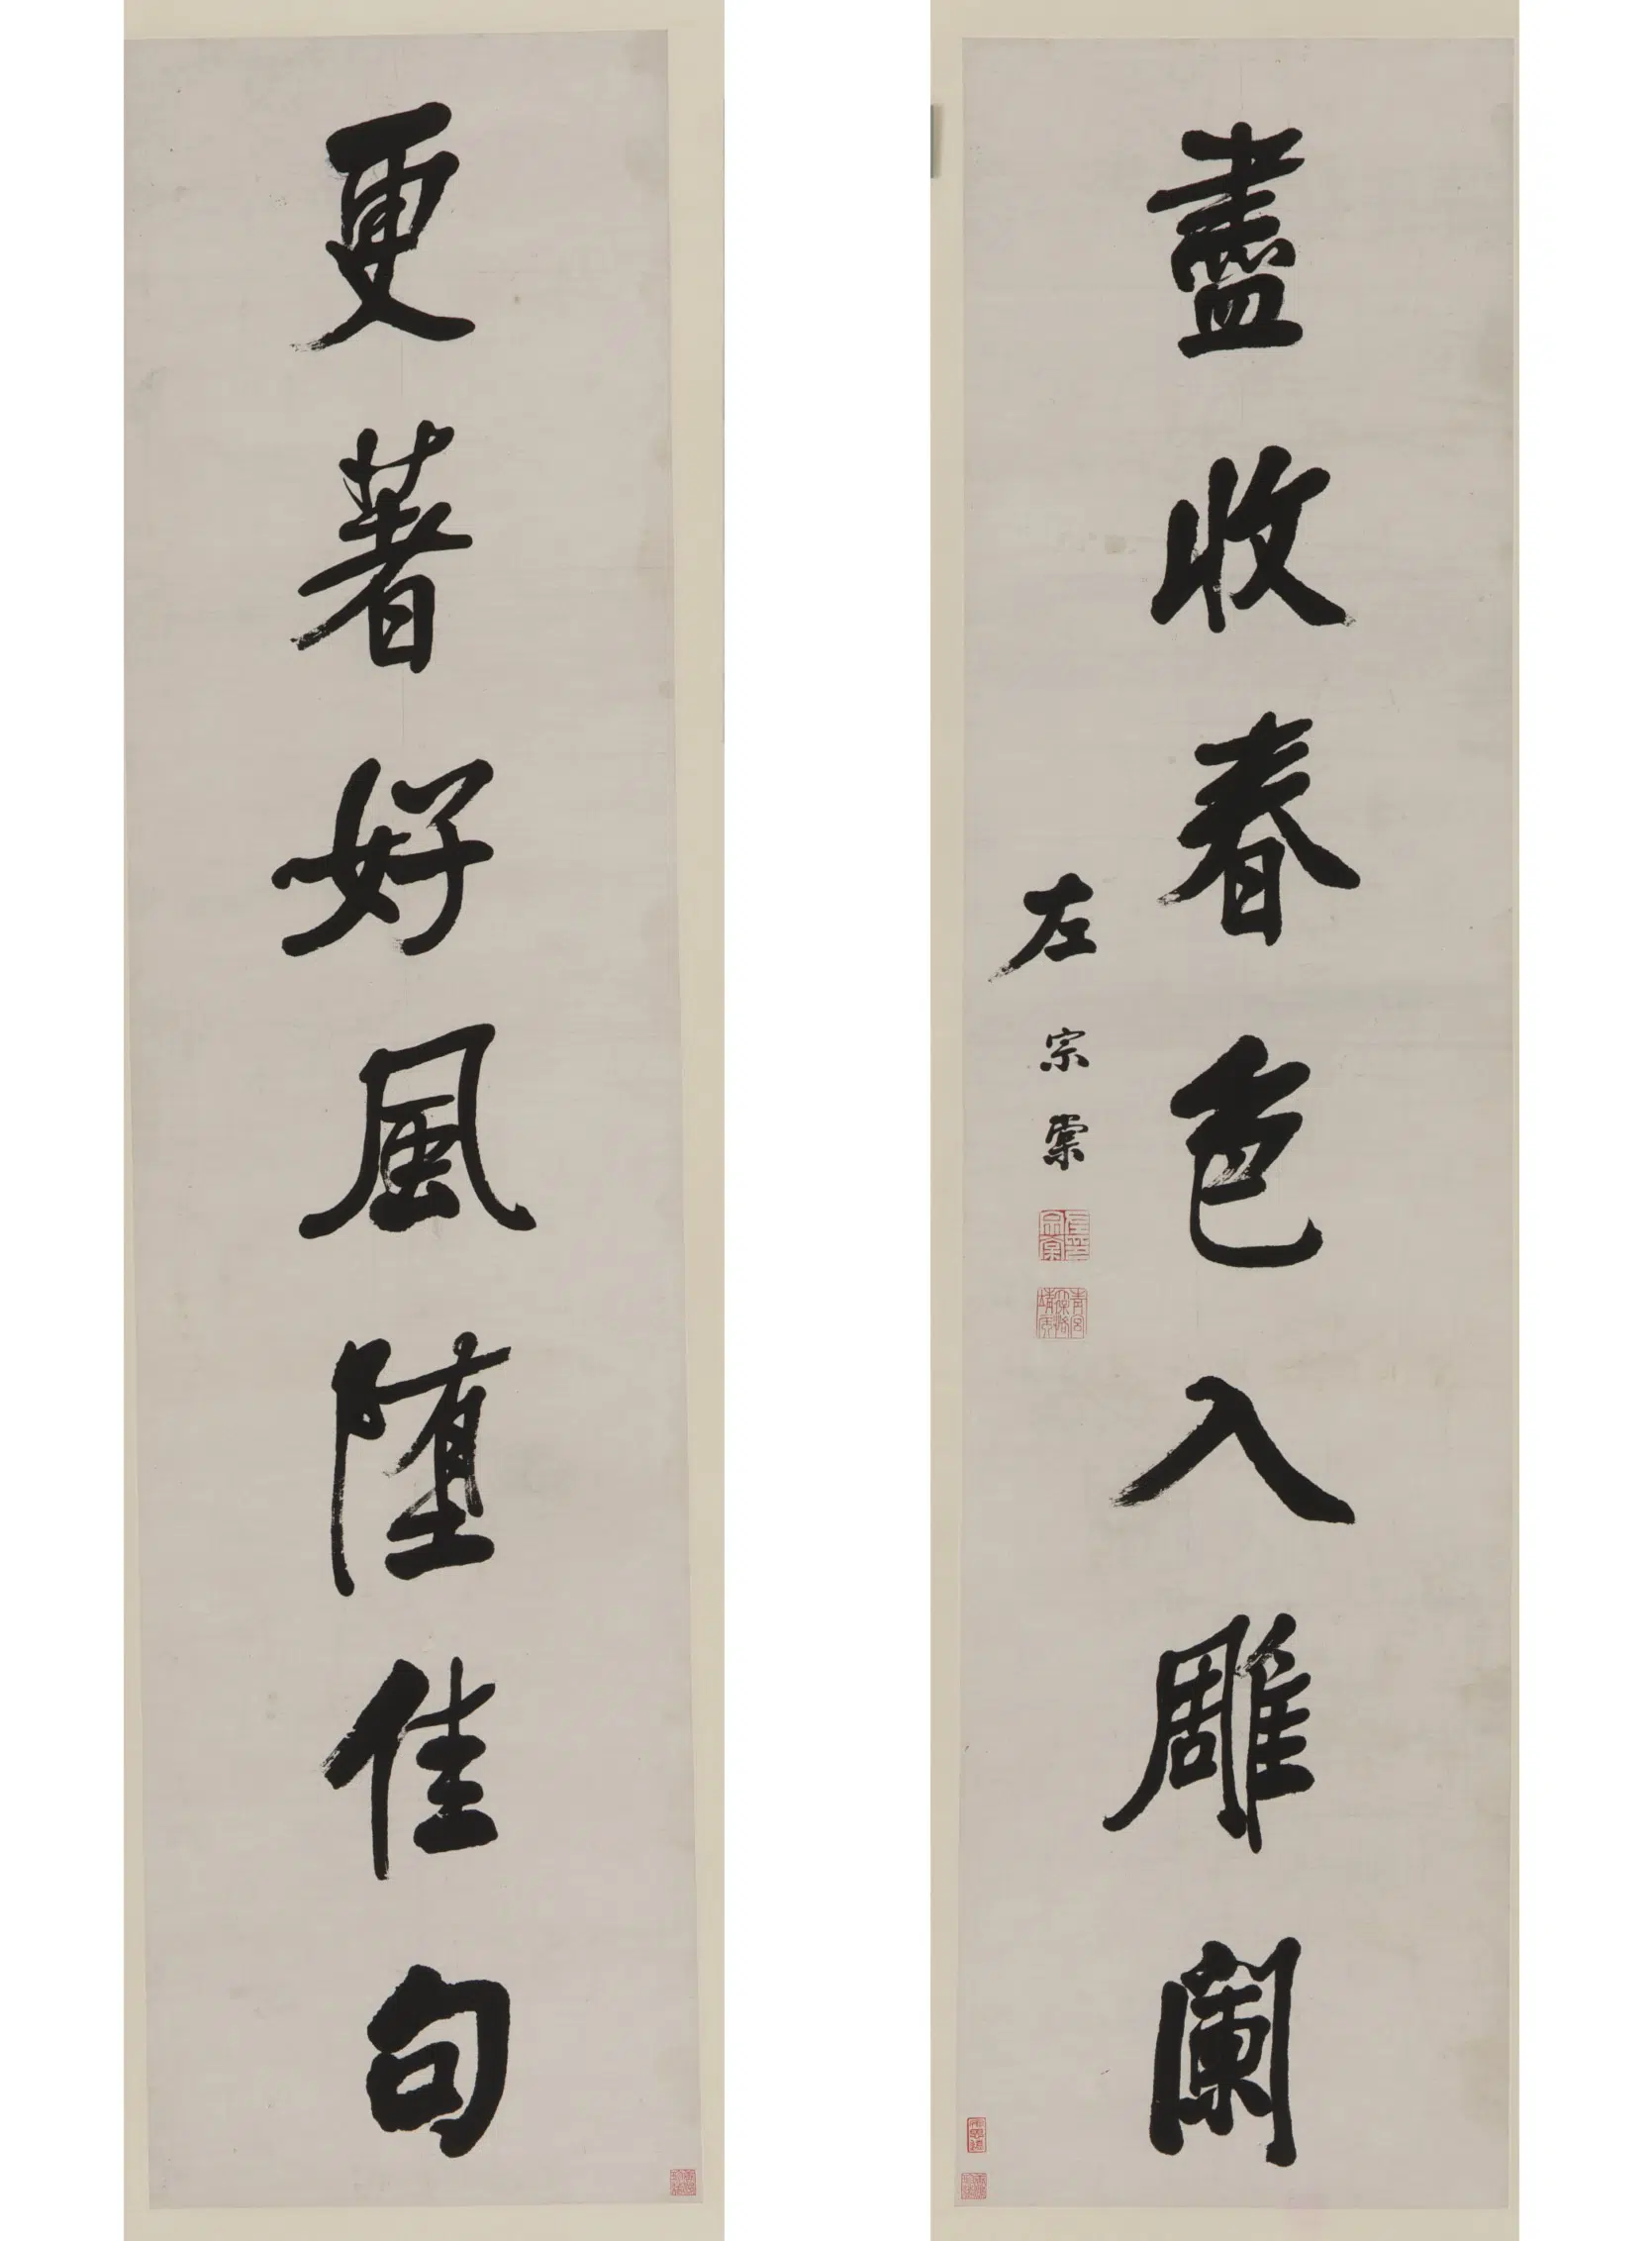 更著好風墮佳句
盡收春色入雕闌
左宗棠